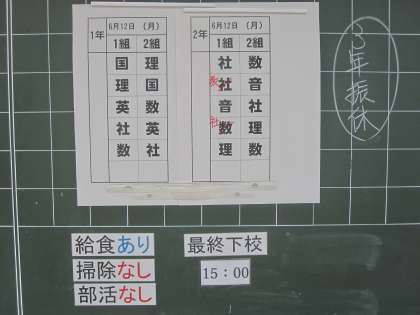 1年 6月12日 (月)
1組 2組
国 理
理 国
英 数
社 英
数 社
2年 6月12日 (月)
1組 2組
社 数
数 社 音
音 社
社 数 理
理 数
3年振休
給食あり
掃除なし
部活なし
最終下校
15:00